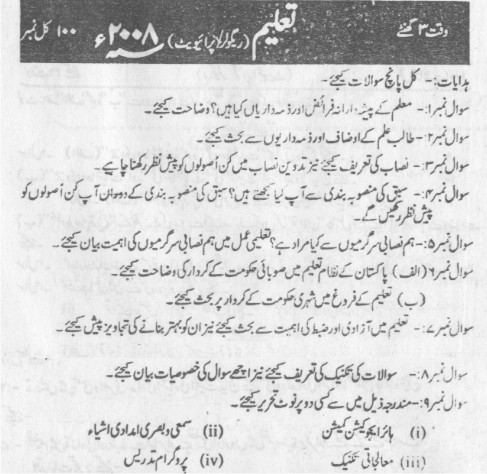 وقت ۳ گھنٹے
تعلیم (ریگولر/پرائیویٹ) سنہ ۲۰۰۸ء
۱۰۰ کل نمبر
ہدایات:- کل پانچ سوالات کیجئے۔
سوال نمبر۱:- معلم کے پیشہ ورانہ فرائض اور ذمہ داریاں کیا ہیں؟ وضاحت کیجئے۔
سوال نمبر۲:- طالب علم کے اوصاف اور ذمہ داریوں سے بحث کیجئے۔
سوال نمبر۳:- نصاب کی تعریف کیجئے نیز تدوین نصاب میں کن اُصولوں کو پیش نظر رکھنا چاہیے۔
سوال نمبر۴:- سبق کی منصوبہ بندی سے آپ کیا سمجھتے ہیں؟ سبق کی منصوبہ بندی کے دوران آپ کن اُصولوں کو
پیش نظر رکھیں گے۔
سوال نمبر۵:- ہم نصابی سرگرمیوں سے کیا مراد ہے؟ تعلیمی عمل میں ہم نصابی سرگرمیوں کی اہمیت بیان کیجئے۔
سوال نمبر۶ (الف) پاکستان کے نظام تعلیم میں صوبائی حکومت کے کردار کی وضاحت کیجئے۔
(ب) تعلیم کے فروغ میں شہری حکومت کے کردار پر بحث کیجئے۔
سوال نمبر۷:- تعلیم میں آزادی اور ضبط کی اہمیت سے بحث کیجئے نیز ان کو بہتر بنانے کی تجاویز پیش کیجئے۔
سوال نمبر۸:- سوالات کی تکنیک کی تعریف کیجئے نیز اچھے سوال کی خصوصیات بیان کیجئے۔
سوال نمبر۹:- مندرجہ ذیل میں سے کسی دو پر نوٹ تحریر کیجئے۔
(i) ہائر ایجوکیشن کمیشن (ii) سمعی و بصری امدادی اشیاء
(iii) معالجاتی تکنیک (iv) پروگرام تدریس